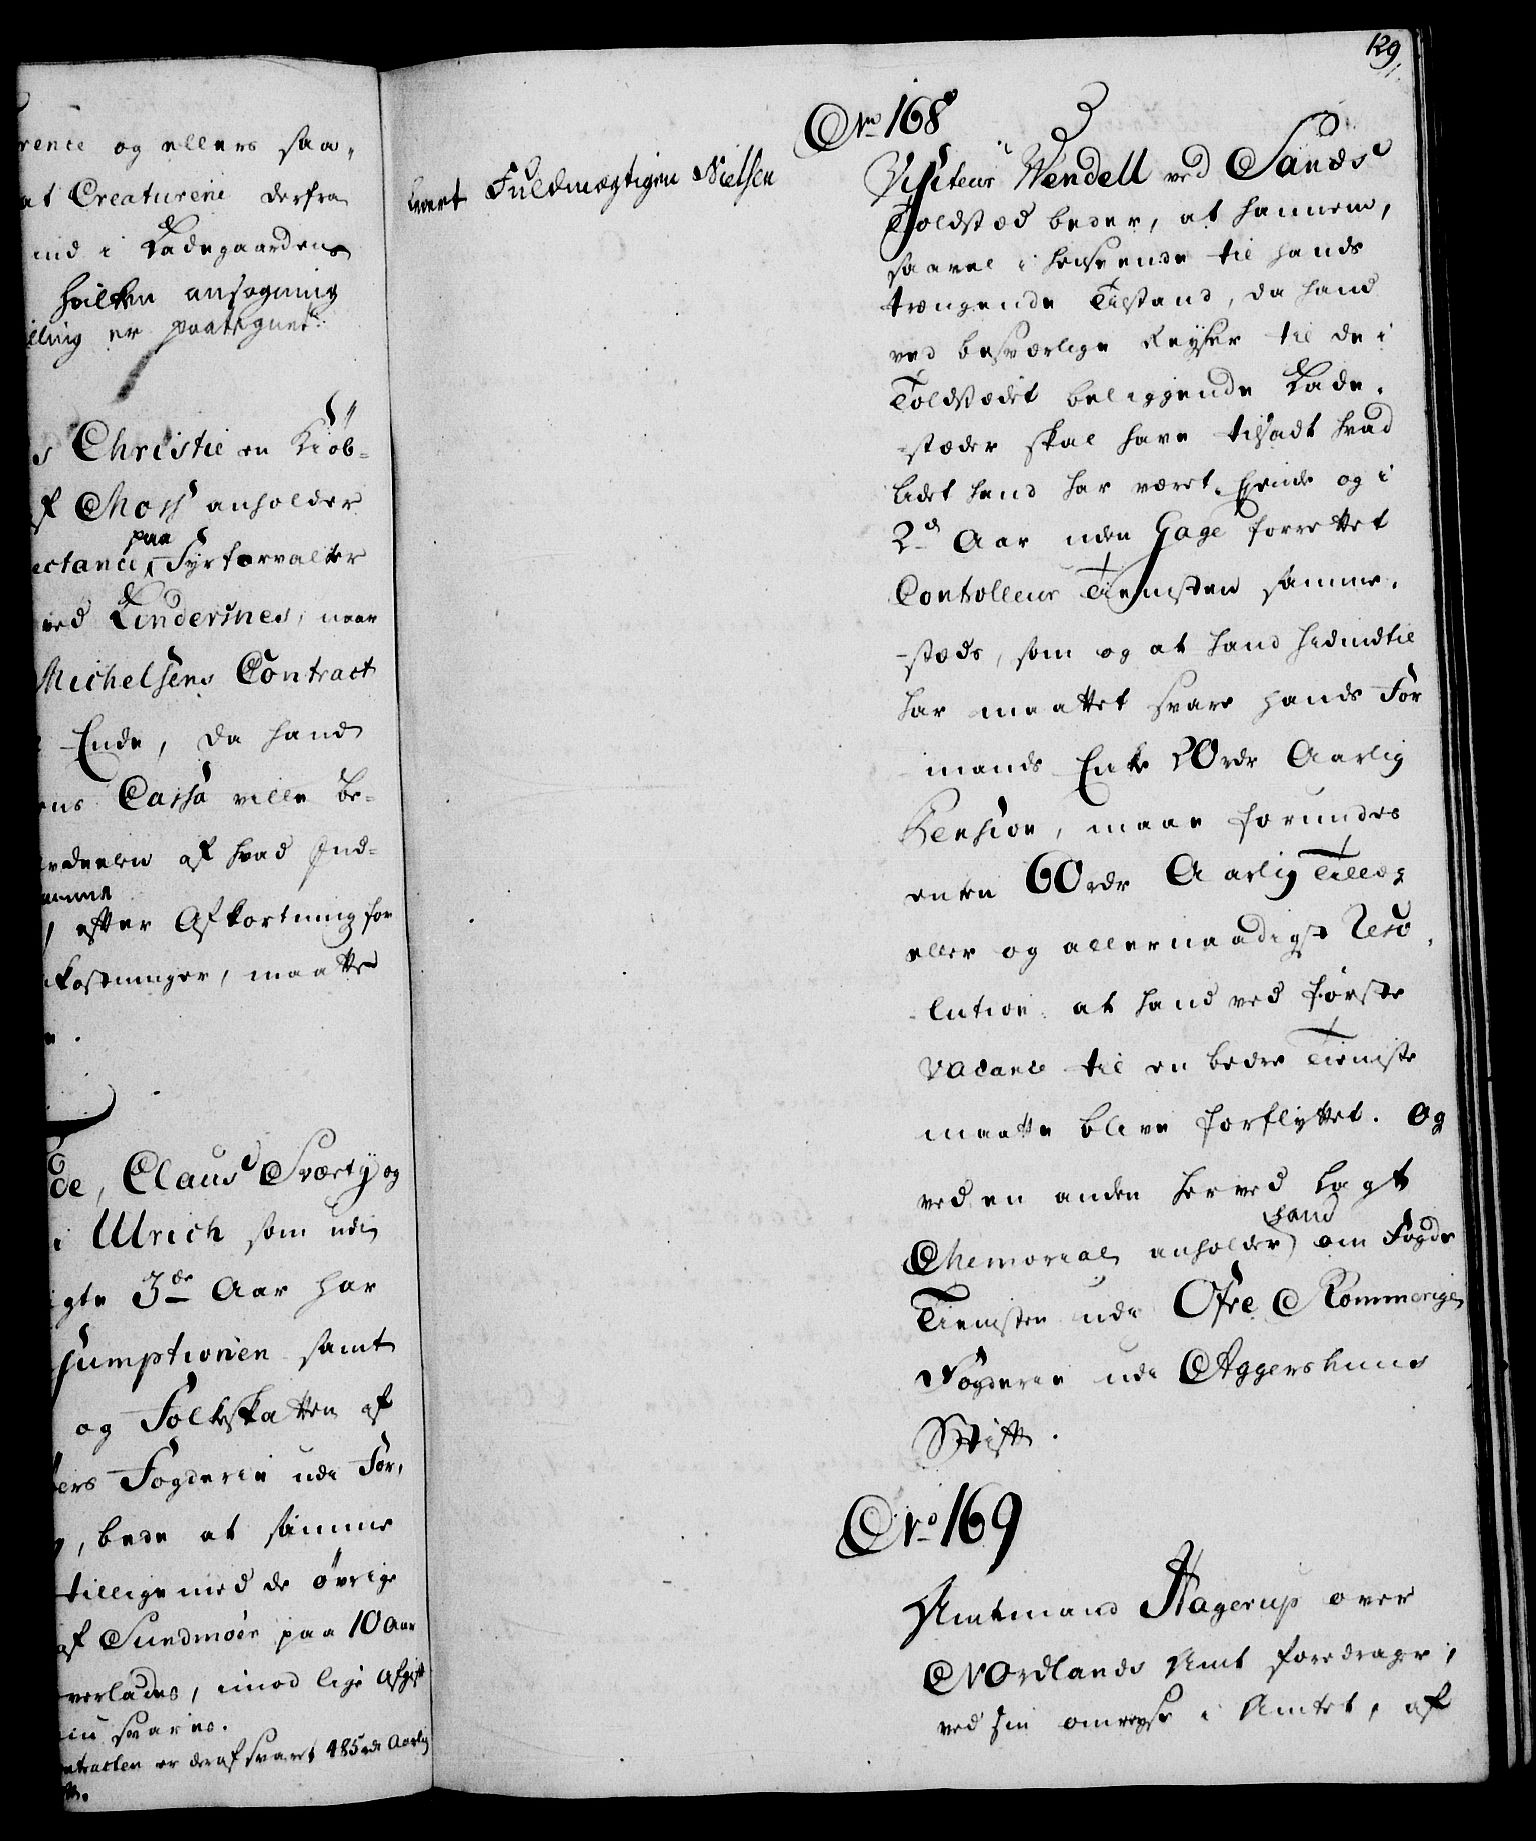 rence og ellers saa-
at Creaturene derfra
ind i Ladegaardens
hvilken ansøgning
lling er paategnet.
s Christie en Kiøb-
f Moss anholder
ectance paa Fyrforvalter
ved Lindersnes, naar
Michelsens Contract
Ende, da hand
ens Cassa ville be-
af hvad Ind-
efter Afkortning for
kostninger, maatte
de, Claus Sværty og
i Ulrich som udi
igte 3de Aar har
sumptionen samt
og Folkeskatten af
ers Fogderie udi For,
, bede at samme
tilligemed de øvrige
af Sundmøer paa 10 Aar
overlades, imod lige Afgift
svares.
ntracten er deraf svaret 485 rdr Aarlig
129
No 168
leveret Fuldmægtigen Nielsen
Visiteur Wendell ved Sands
Toldsted beder, at hannem,
saavel i henseende til hands
trængende Tilstand, da hand
ved besværlige Reyser til de i
Toldstedet beliggende Lade-
-stæder skal have tilsadt hvad
lidet hand har været Eyende og i
2de Aar uden Gage forrettet
Controlleur Tienisten samme-
-steds, som og at hand hidindtil
har maattet svare hands For
mands Enke 20 rdr Aarlig
Pension, maae forundes
enten 60 rdr Aarlig Tillæg
eller og allernaadigst Reso-
-lution at hand ved første
Vacance til en bedre Tieniste
maatte blive forflyttet. Og
ved en anden herved lagt
Memorial anholder hand om Fogde
Tienisten udi Øfre Rommerige
Fogderie udi Aggershuus
Stift.
No 169
Amtmand Hagerup over
Nordlands Amt foredrager,
ved sin omreyse i Amtet, af